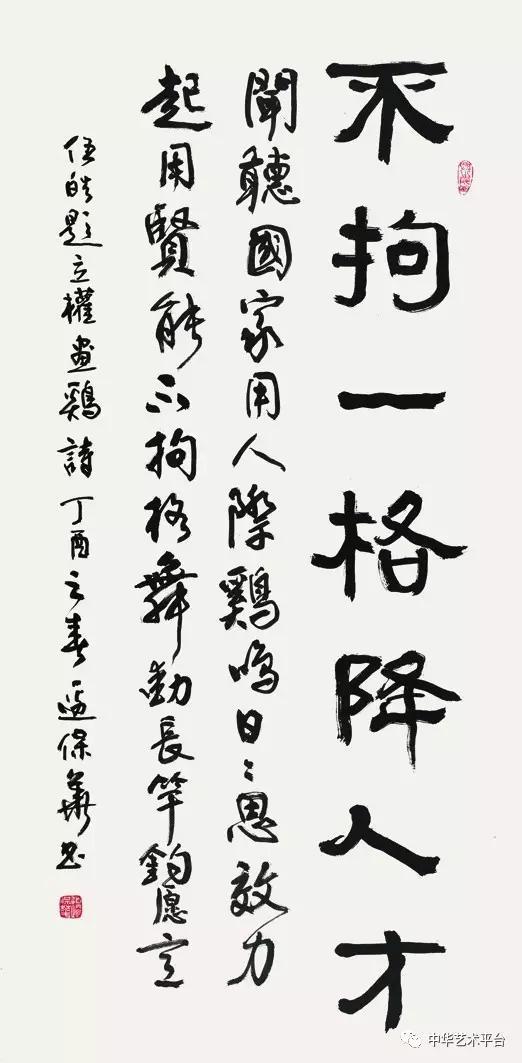 不拘一格降人才
聞聽國家用人際鷄鳴日〻思效力
起用賢能不拘格舞動長竿鈞愿
伍皓題立權畫鷄詩丁酉之春保華書
中华艺术平台